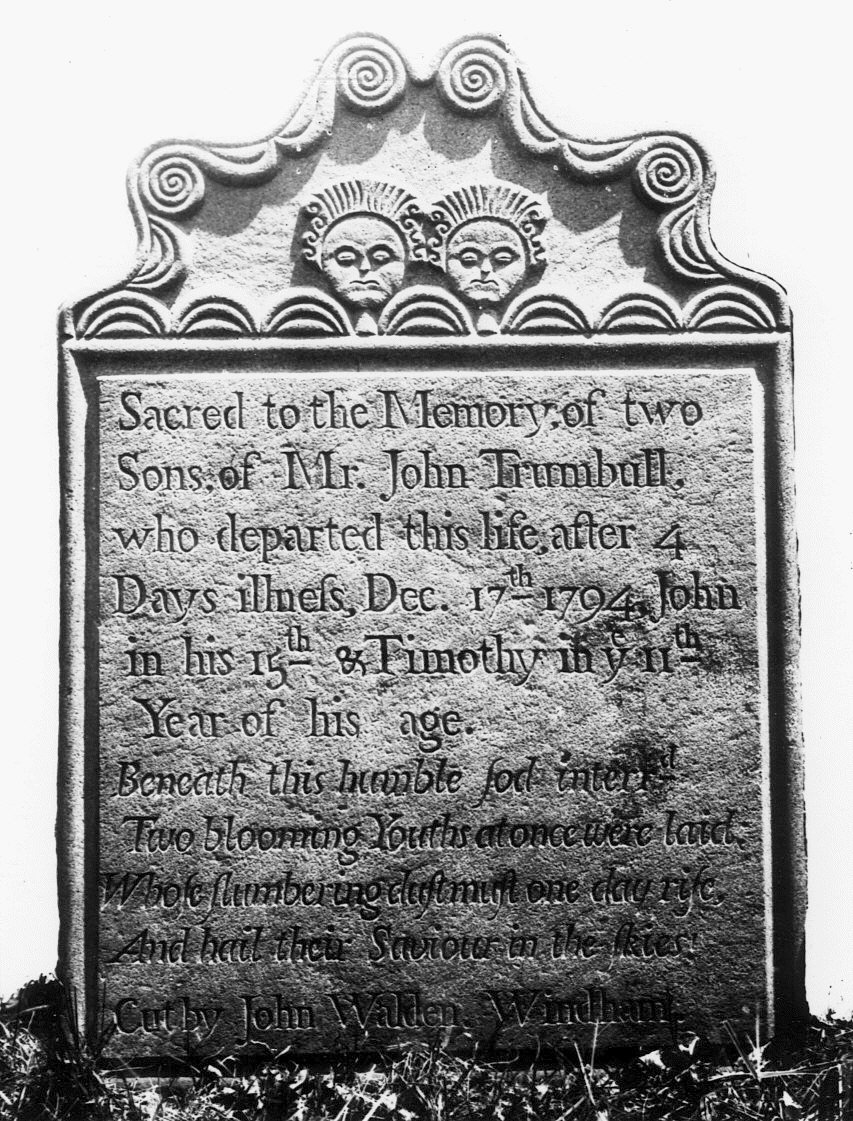 Sacred to the Memory, of two
Sons, of Mr. John Trumbull,
who departed this life, after 4
Days illneſs, Dec. 17th 1794, John
in his 15th & Timothy in ye 11th
Year of his age.
Beneath this humble ſod interrd
Two blooming Youths at once were laid;
Whoſe ſlumbering duſt muſt one day riſe,
And hail their Saviour in the ſkies.
Cut by John Walden, Windham.